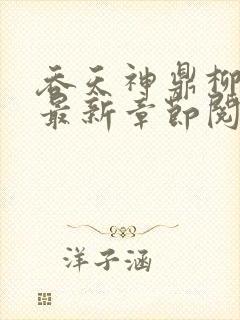 吞天神鼎柳
最新章节阅
洋子涵